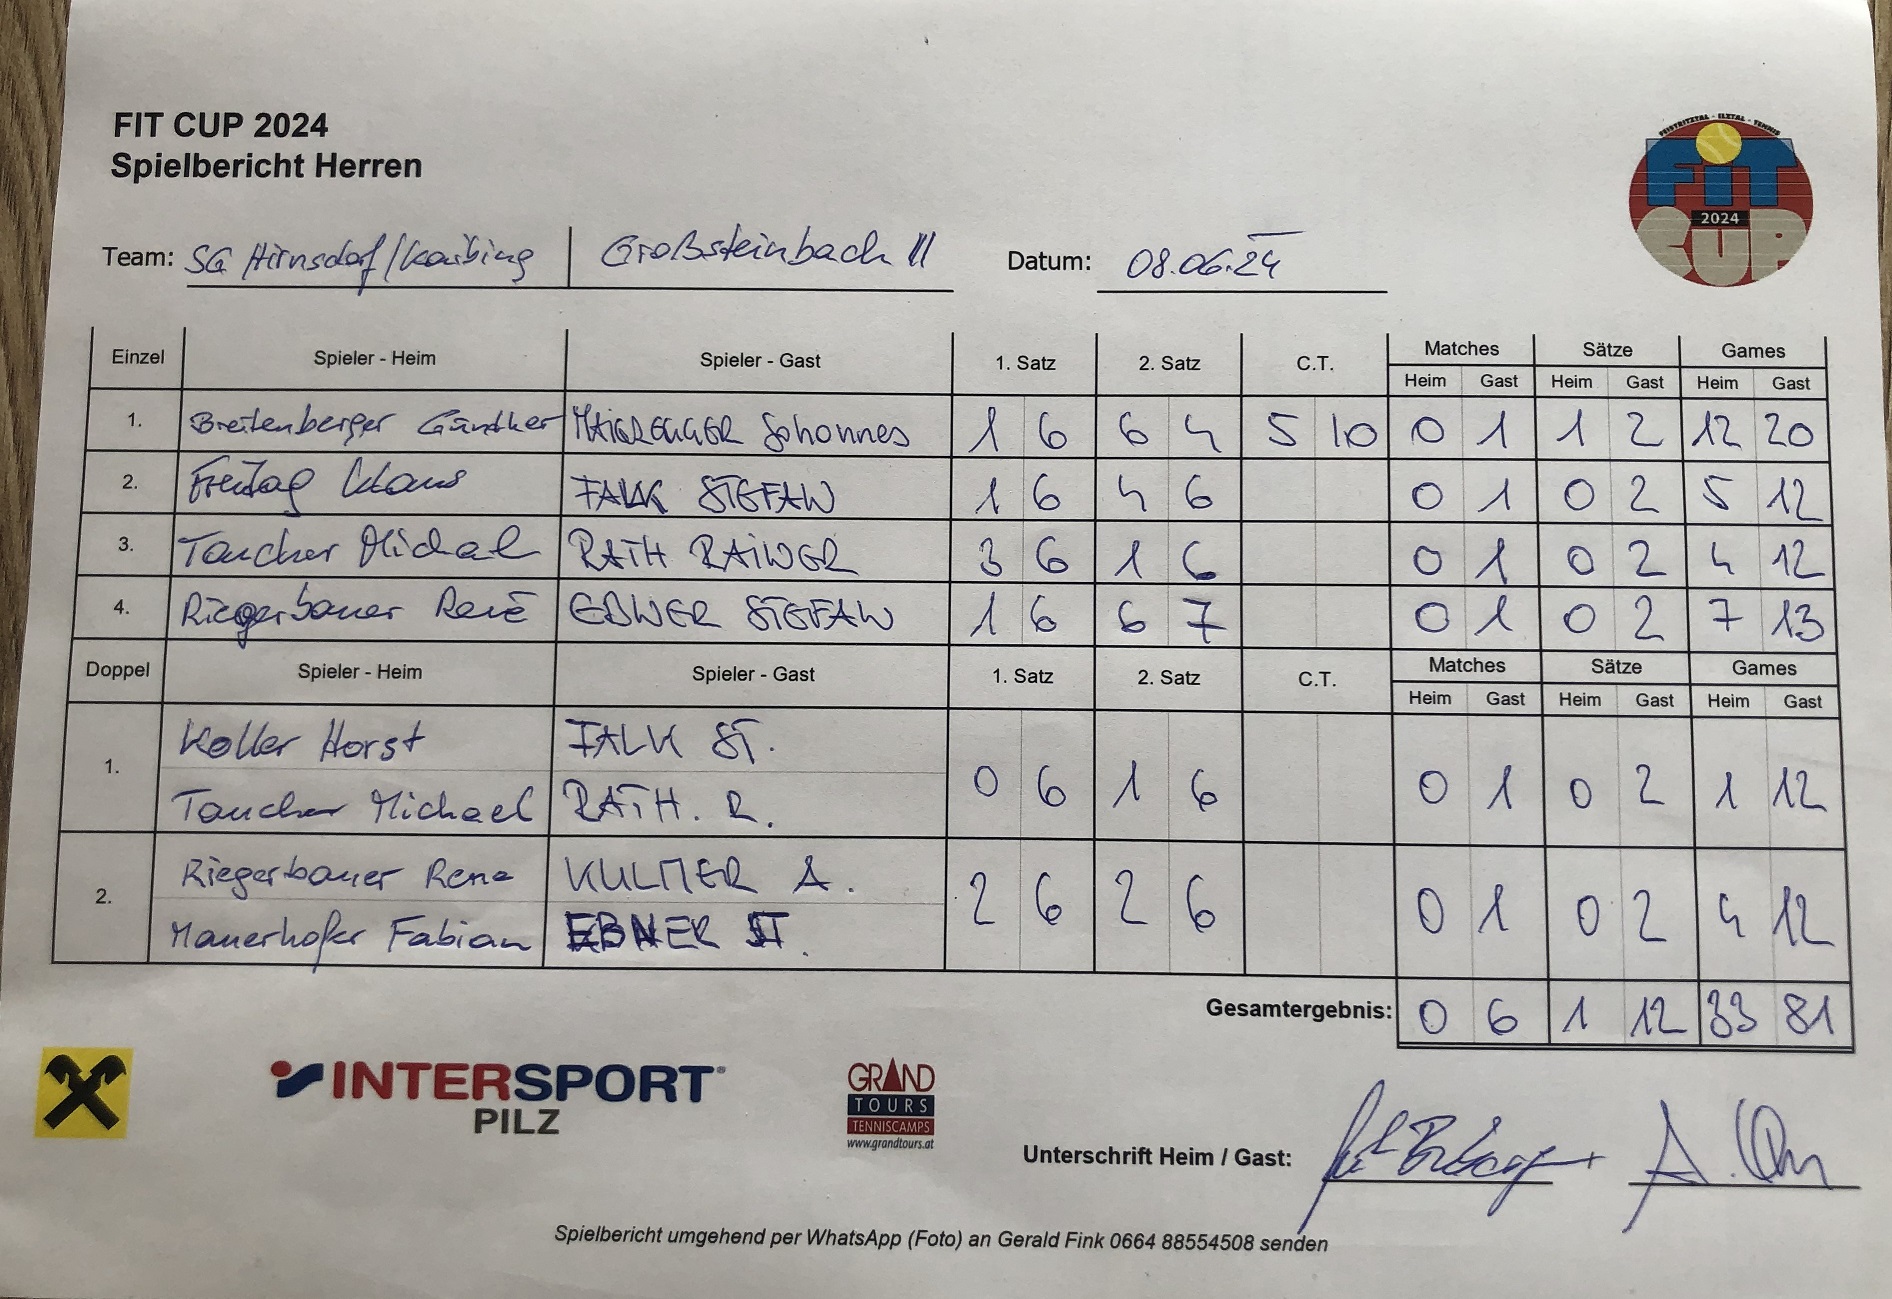 FIT CUP 2024
Spielbericht Herren
FEISTRITZTAL - ILZTAL - TENNIS
FIT
2024
CUP
Team: SG Hirnsdorf/Kaibing Großsteinbach III Datum: 08.06.24
Einzel Spieler - Heim Spieler - Gast 1. Satz 2. Satz C.T. Matches Sätze Games
Heim Gast Heim Gast Heim Gast
1. Breitenberger Günther Johannes 1 6 6 4 5 10 0 1 1 2 12 20
2. Freitag Klaus FALK STEFAN 1 6 4 6 0 1 0 2 5 12
3. Taucher Michael RATH RAINER 3 6 1 6 0 1 0 2 4 12
4. Riegerbauer René EBNER STEFAN 1 6 6 7 0 1 0 2 7 13
Doppel Spieler - Heim Spieler - Gast 1. Satz 2. Satz C.T. Matches Sätze Games
Heim Gast Heim Gast Heim Gast
1. Koller Horst FALK ST. 0 6 1 6 0 1 0 2 1 12
Taucher Michael RATH. R.
2. Riegerbauer Rene KULMER A. 2 6 2 6 0 1 0 2 4 12
Mauerhofer Fabian EBNER ST.
Gesamtergebnis: 0 6 1 12 33 81
INTERSPORT
PILZ
GRAND
TOURS
TENNISCAMPS
www.grandtours.at
Unterschrift Heim / Gast:
Spielbericht umgehend per WhatsApp (Foto) an Gerald Fink 0664 88554508 senden